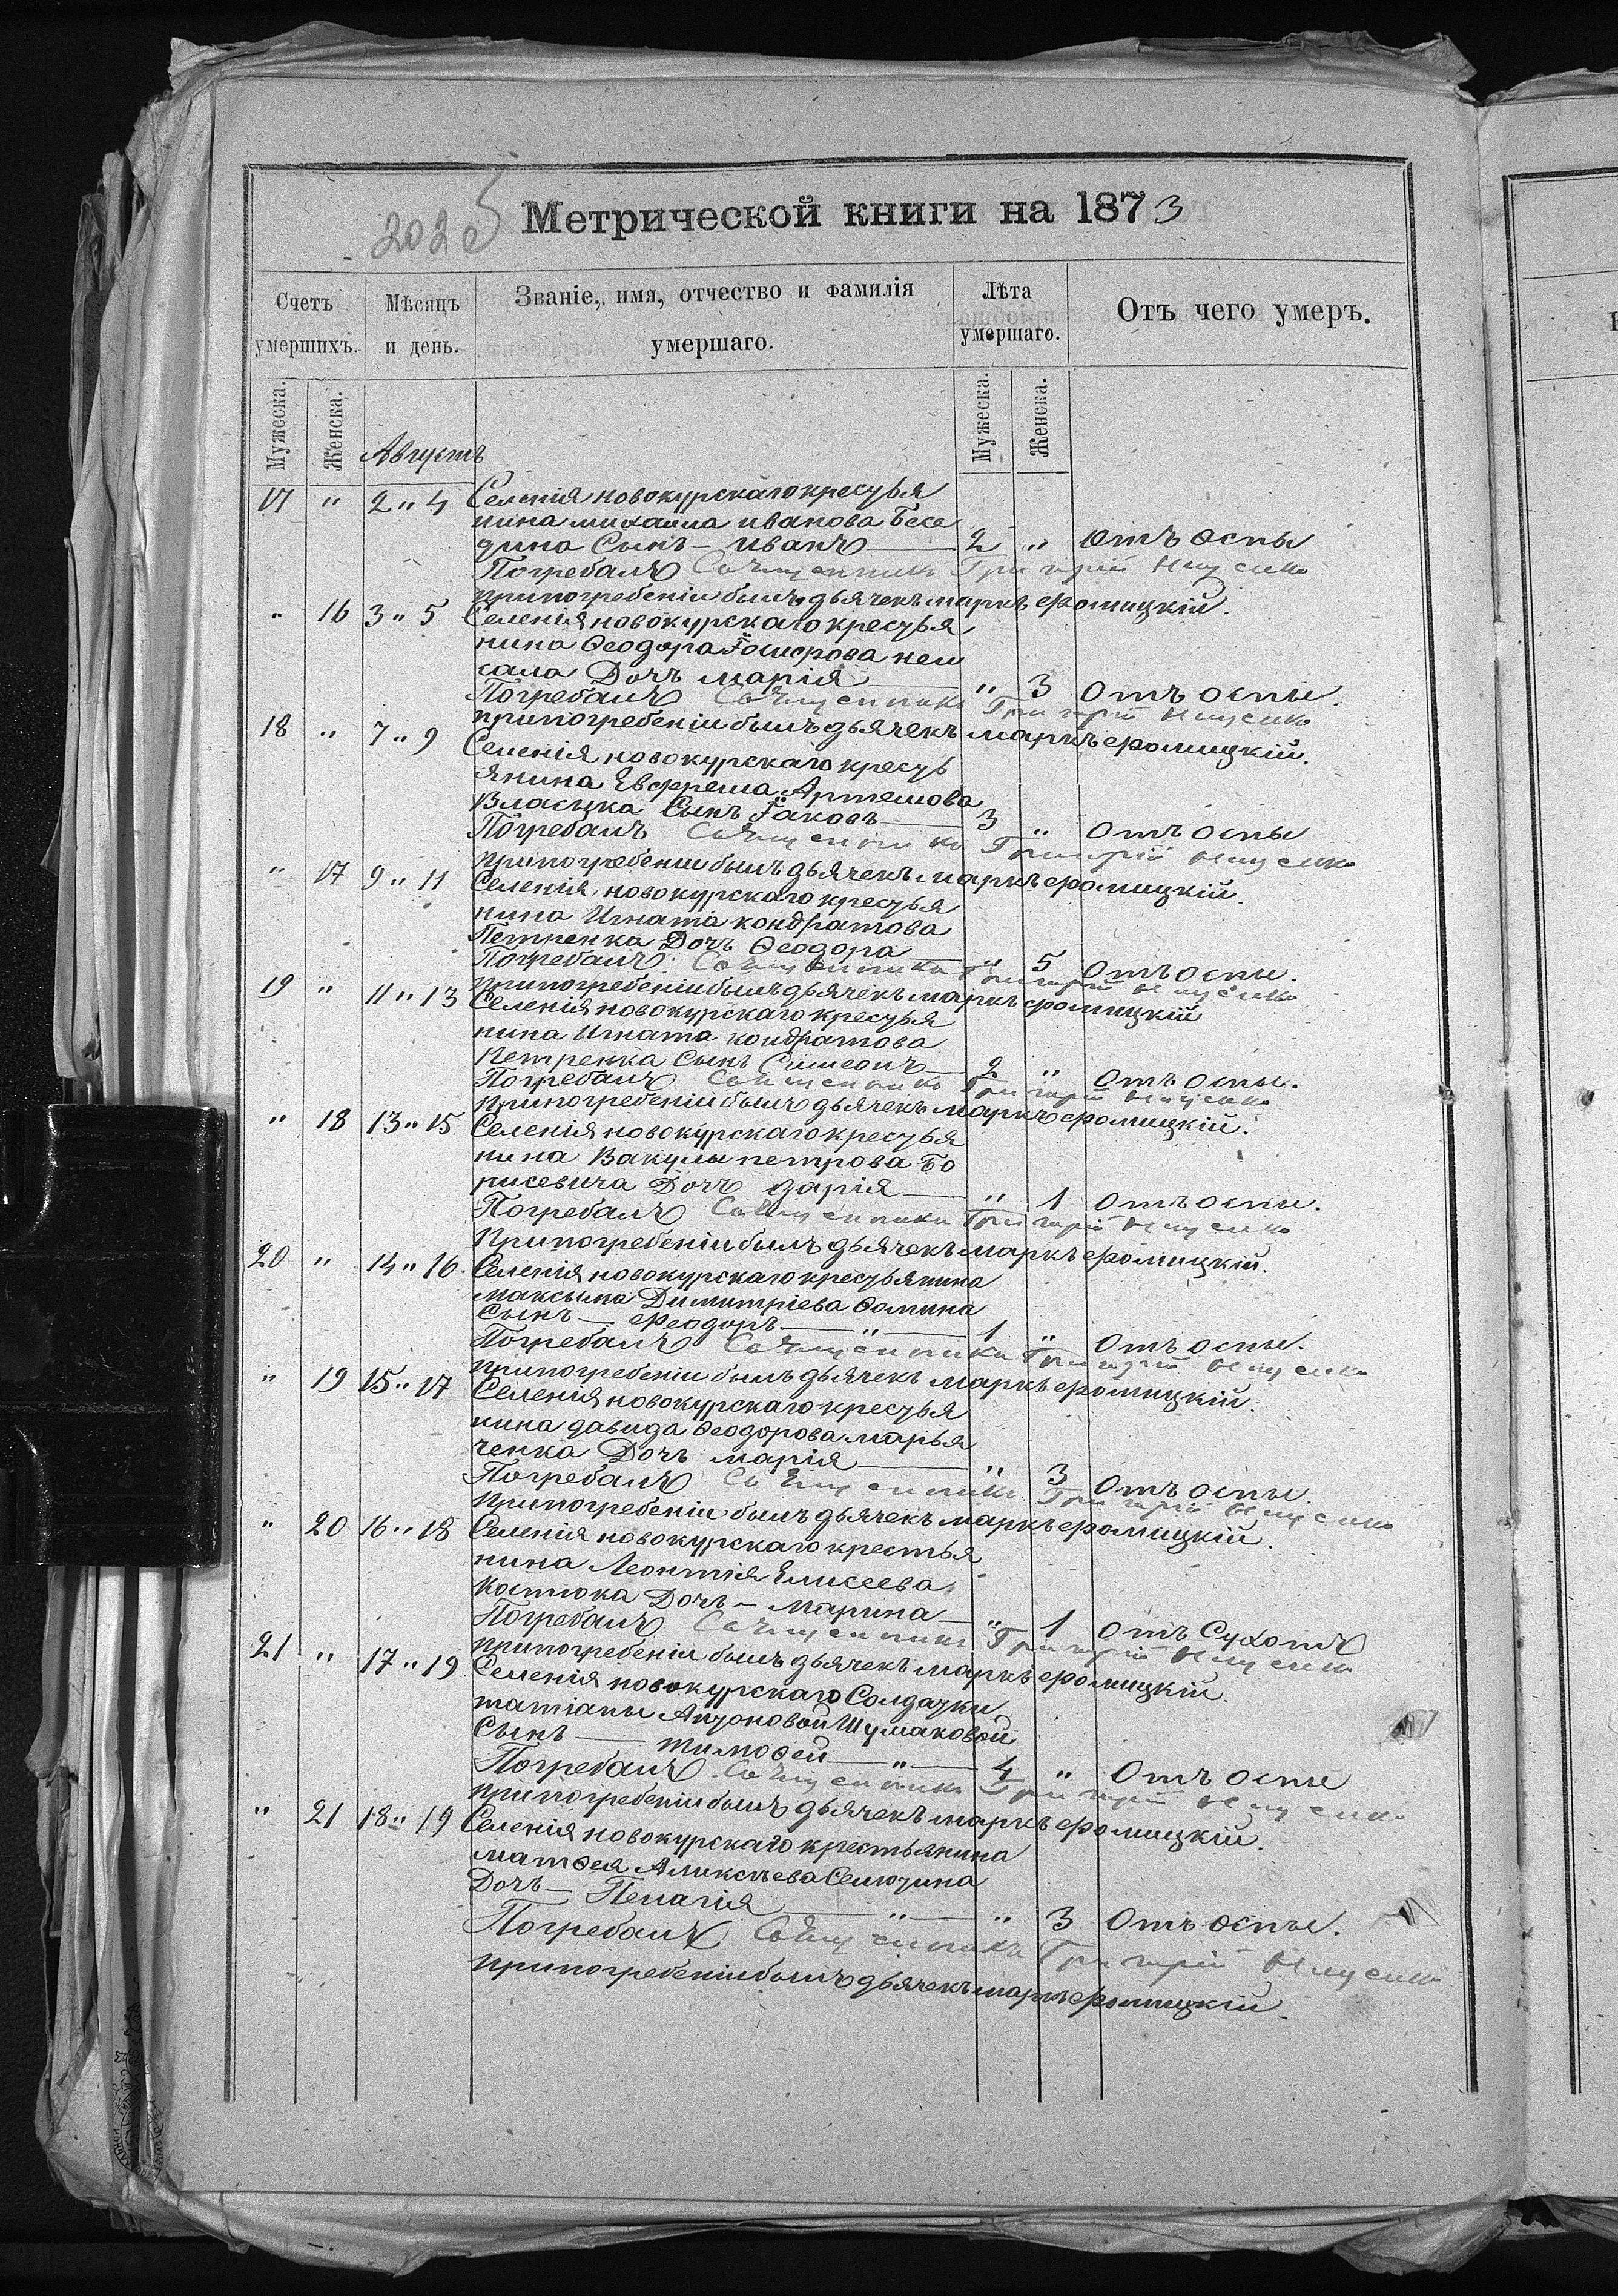 2025
Метрической книги на 1873
Счетъ умершихъ.
Мѣсяцъ и день.
Званіе, имя, отчество и фамилія умершаго.
Лѣта умершаго.
Отъ чего умеръ.
Мужеска.
Женска.
Августъ
Мужеска.
Женска.
17 " 2 " 4 Селенія новокурскаго крестья
нина михаила иванова Бесе
дина Сынъ — иванъ — 2 " отъ оспы
Погребалъ Священникъ Григорій
при погребеніи былъ дьячекъ маркъ фомицкій.
" 16 3 " 5 Селенія новокурскаго крестья
нина Ѳеодора
Дочь марія — " 3 Отъ оспы.
Погребалъ Священникъ Григорій
при погребеніи былъ дьячекъ маркъ фомицкій.
18 " 7 " 9 Селенія новокурскаго кресть
янина Евфрема Артемова
Власенка Сынъ Іаковъ — 3 " Отъ оспы
Погребалъ Священникъ Григорій
при погребеніи былъ дьячекъ маркъ фомицкій.
" 17 9 " 11 Селенія новокурскаго крестья
нина Игната кондратова
Петренка Дочь Ѳеодора — " 5 Отъ оспы.
Погребалъ Священникъ Григорій
при погребеніи былъ дьячекъ маркъ фомицкій
19 " 11 " 13 Селенія новокурскаго крестья
нина Игната кондратова
Петренка Сынъ Симеонъ — 2 " Отъ оспы.
Погребалъ Священникъ Григорій
при погребеніи былъ дьячекъ маркъ фомицкій.
" 18 13 " 15 Селенія новокурскаго крестья
нина Вакулы петрова Бо
рисевича Дочь дарія — " 1 Отъ оспы.
Погребалъ Священникъ Григорій
При погребеніи былъ дьячекъ маркъ фомицкій.
20 " 14 " 16 Селенія новокурскаго крестьянина
максима Димитріева Ѳомина
Сынъ — Феодоръ — " — 1 " Отъ оспы.
Погребалъ Священникъ Григорій
при погребеніи былъ дьячекъ маркъ фомицкій.
" 19 15 " 17 Селенія новокурскаго крестья
нина давида Ѳеодорова марья
ченка Дочь марія — " 3 Отъ оспы.
Погребалъ Священникъ Григорій
при погребеніи былъ дьячекъ маркъ фомицкій.
" 20 16 " 18 Селенія новокурскаго крестья
нина Леонтія Елисеева
Костюка Дочь — марина — " 1 Отъ Сухотъ
Погребалъ Священникъ Григорій
при погребеніи былъ дьячекъ маркъ фомицкій.
21 " 17 " 19 Селенія новокурскаго Солдатки
татіаны Антоновой Шумаковой
Сынъ — тимоѳей — " — 4 " Отъ оспы
Погребалъ Священникъ Григорій
при погребеніи былъ дьячекъ маркъ фомицкій.
" 21 18 " 19 Селенія новокурскаго крестьянина
матѳея Алексѣева Селютина
Дочь — Пелагія — " — " 3 Отъ оспы.
Погребалъ Священникъ Григорій
при погребеніи былъ дьячекъ маркъ фомицкій.